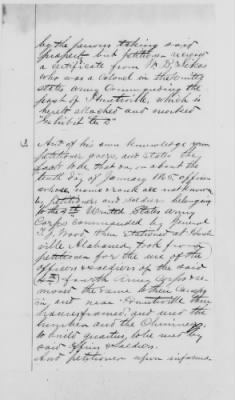 by the persons taking said
property but petitioner received
a certificate from W. D.
who was a Colonel in the United
states army Commanding the
post of Huntsville, which is
hereto attached and marked
"Exhibit
3 And of his own knowledge your
petitioner further states the
that on or about the
tenth day of January 1865 officers
whose names & rank are not known
by petitioner and soldiers belonging
to the 4th United States army
Corps commanded by General
T. J. Wood then stationed at Hunts
ville Alabama, took from
petitioner for the use of the
officers & soldiers of the said
4th Fourth Army Corps re-
moved the same to their Camps
in and near Huntsville then
and used the
lumber and the Chimneys
to build quarters, to be used by
said officers & soldiers.
And petitioner upon informa